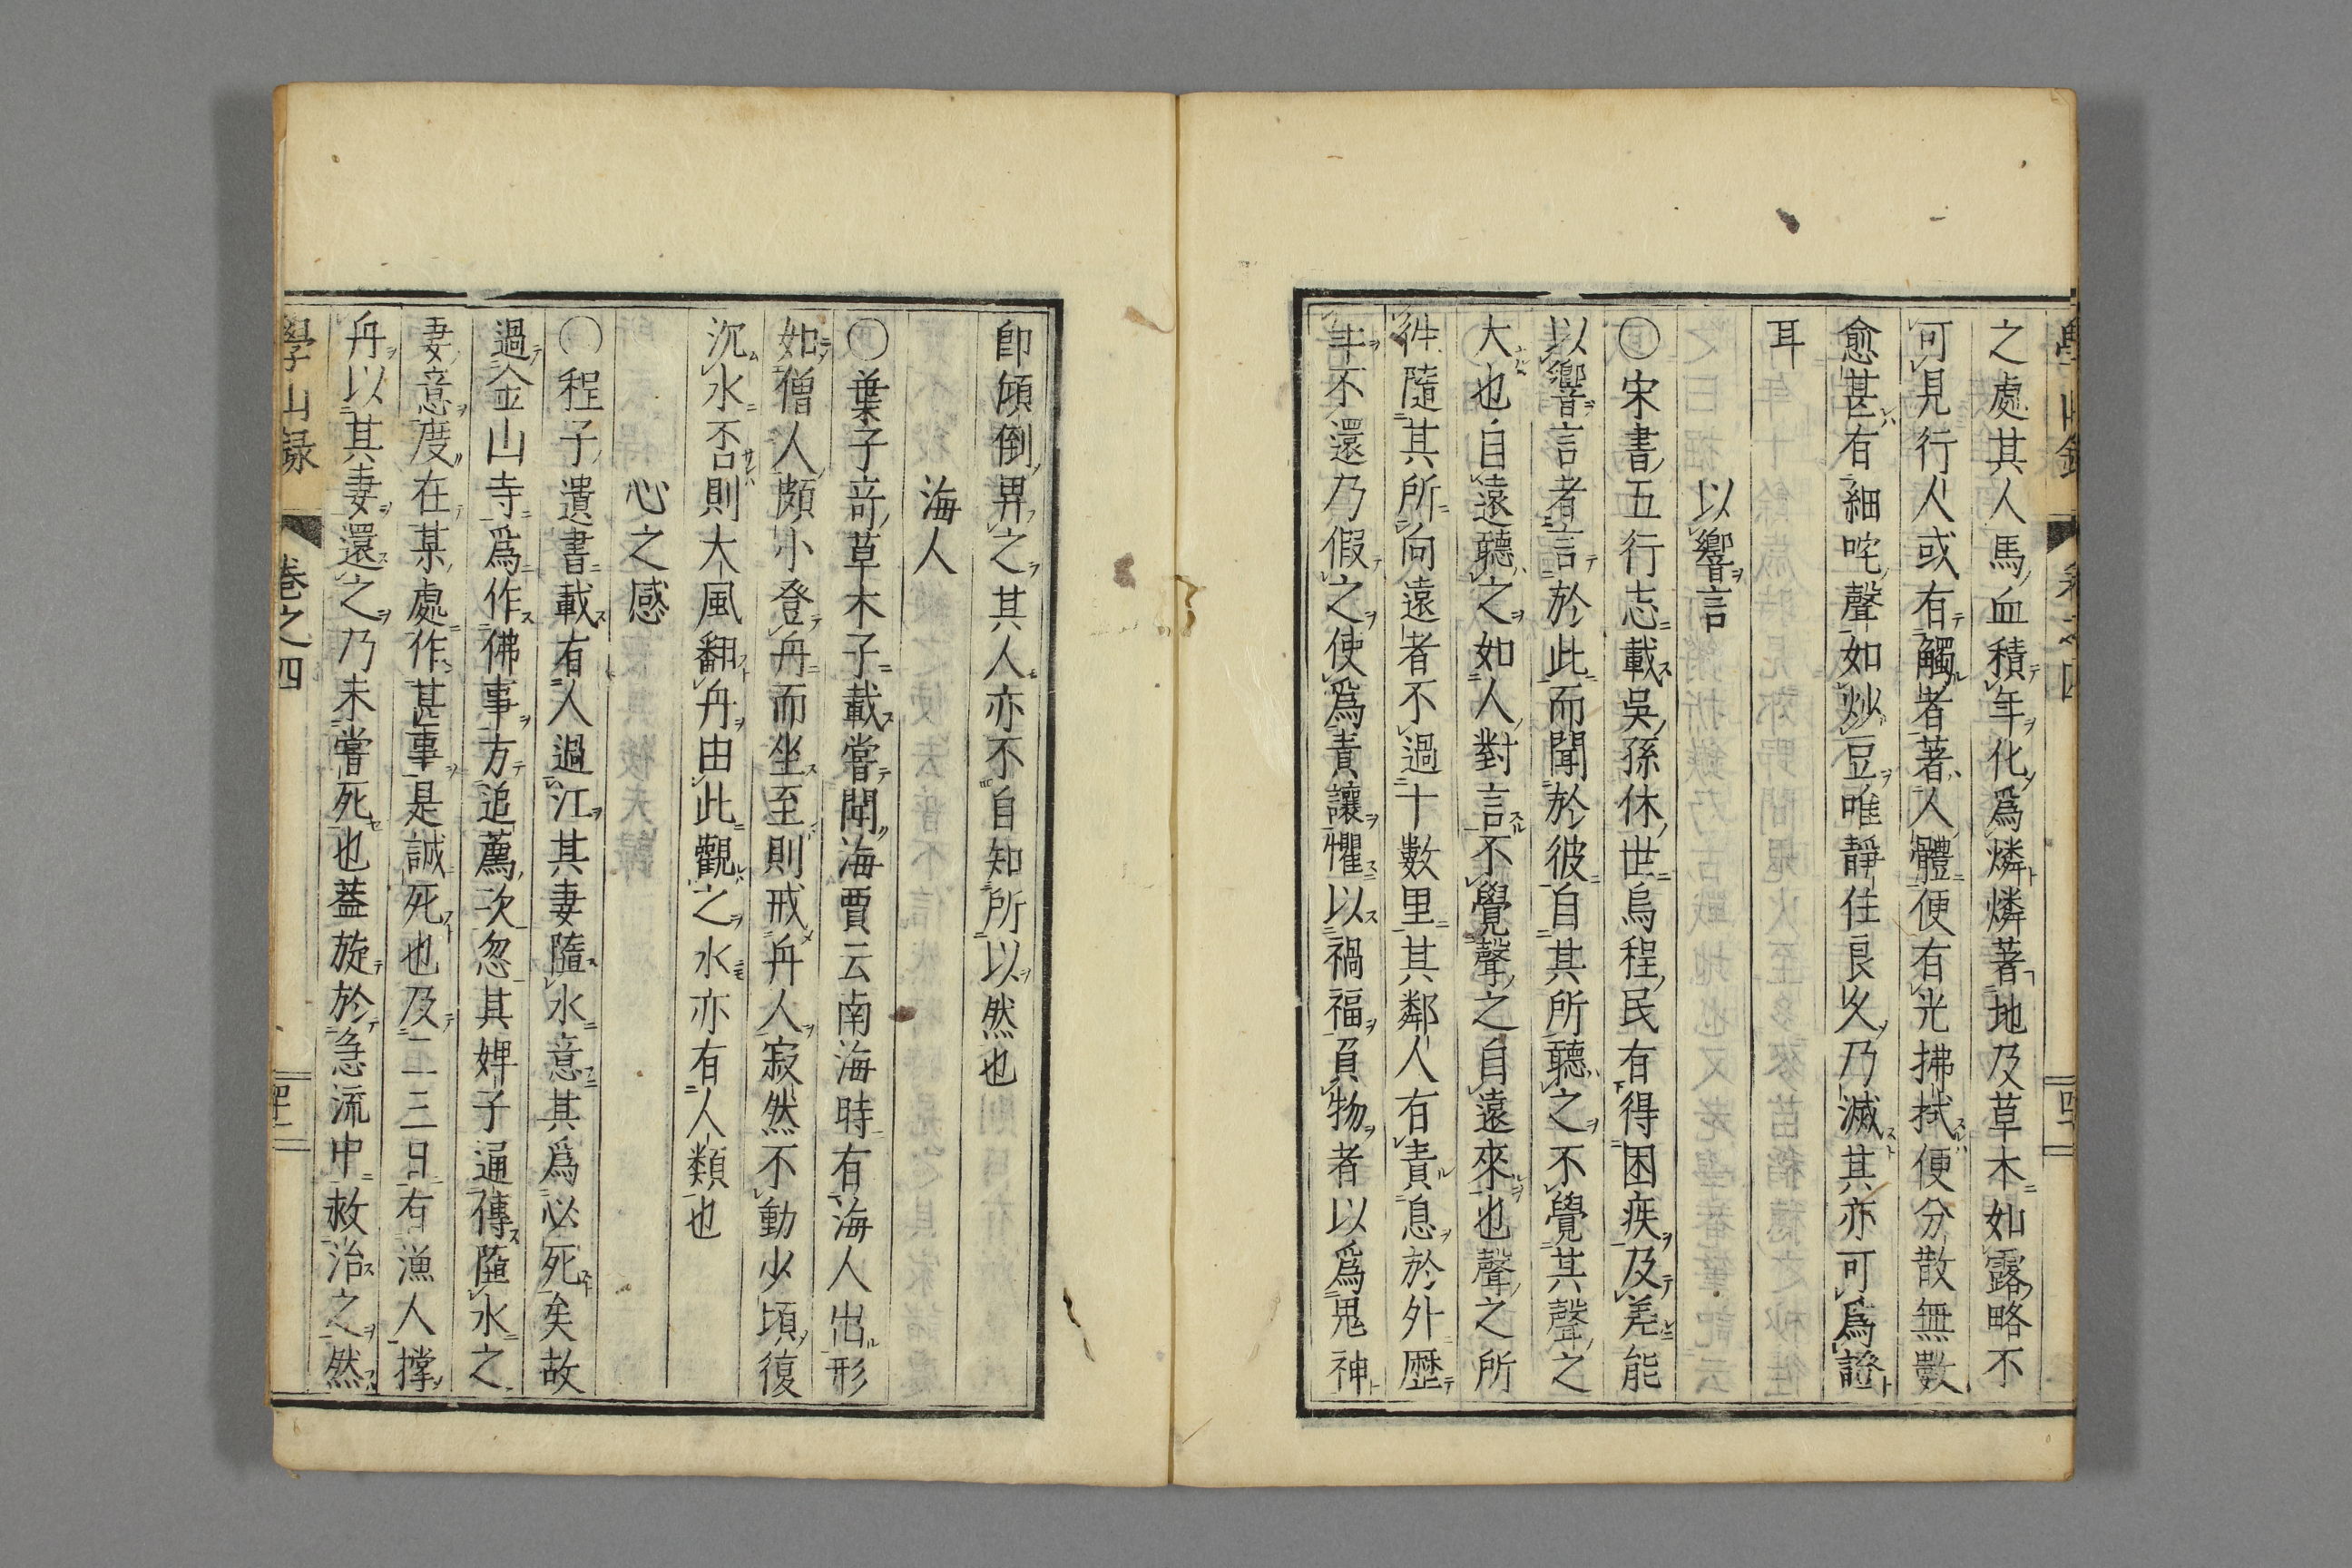 之處其人馬血積年化爲燐燐著地及草木如露略不
可見行人或有觸者著人體便有光拂拭便分散無數
愈甚有細咤聲如炒豆唯靜住良久乃滅其亦可爲證
耳
以響言
○宋書五行志載吳孫休世烏程民有得困疾及差能
以響言者言於此而聞於彼自其所聽之不覺其聲之
大也自遠聽之如人對言不覺聲之自遠來也聲之所
徃隨其所向遠者不過十數里其鄰人有責息於外歷
年不還乃假之使爲責讓懼以禍福負物者以爲鬼神
卽傾倒畀之其人亦不自知所以然也
海人
○葉子奇草木子載嘗聞海賈云南海時有海人出形
如僧人頗小登舟而坐至則戒舟人寂然不動少頃復
沉水否則大風翻舟由此觀之水亦有人類也
心之感
○程子遺書載有人過江其妻隨水意其爲必死矣故
過金山寺爲作佛事方追薦次忽其婢子通傳墮水之
妻意度在某處作甚事是誠死也及二三日有漁人撑
舟以其妻還之乃未嘗死也蓋旋於急流中救治之然
學山録 卷之四 四十二